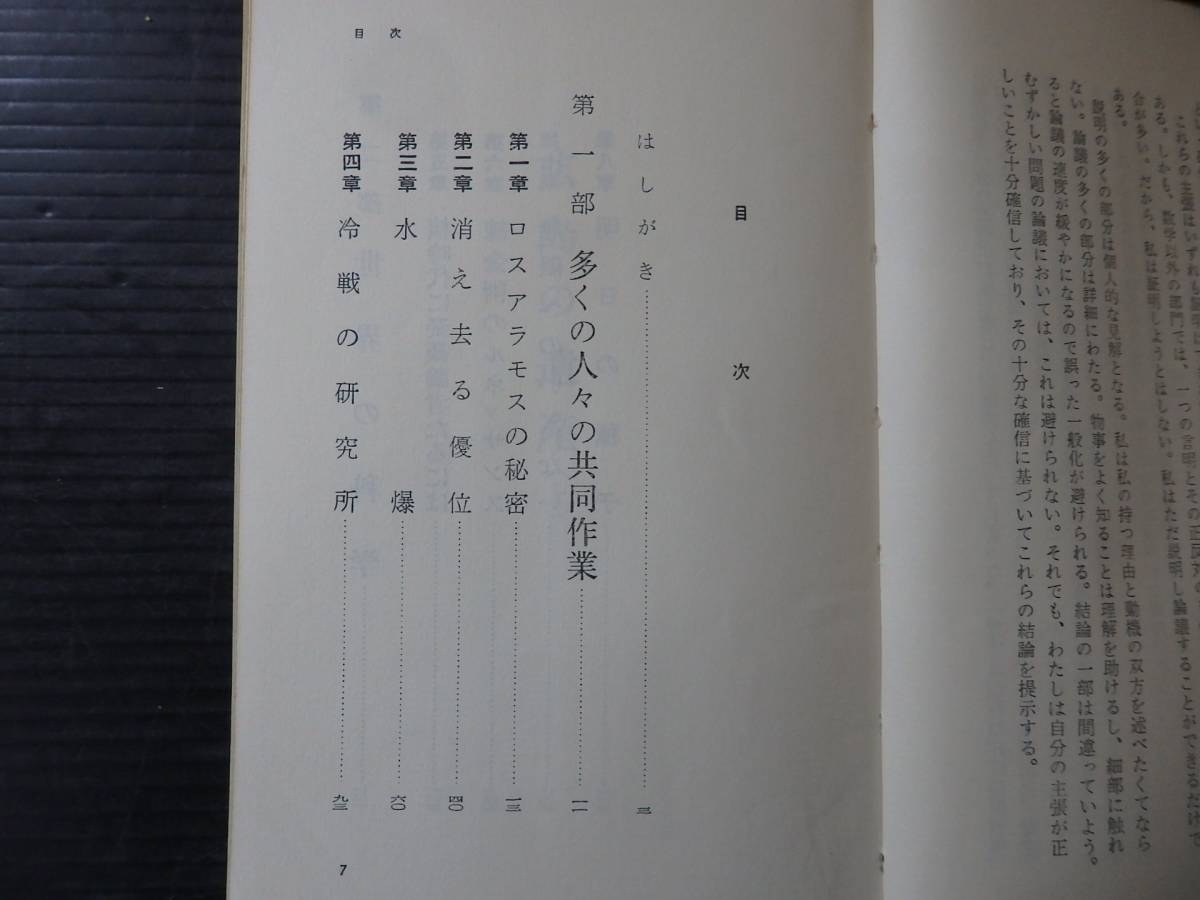 これらの主張はいずれも
合が多い。だから、私は証明しようとはしない。私はただ説明し論議することができるだけで
ある。しかも、数学以外の部門では、一つの言明とその正反対の
ある。
説明の多くの部分は個人的な見解となる。私は私の持つ理由と動機の双方を述べたくてなら
ない。論議の多くの部分は詳細にわたる。物事をよく知ることは理解を助けるし、細部に触れ
ると論議の速度が緩やかになるので誤った一般化が避けられる。結論の一部は間違っていよう。
むずかしい問題の論議においては、これは避けられない。それでも、わたしは自分の主張が正
しいことを十分確信しており、その十分な確信に基づいてこれらの結論を提示する。
目次
目次
はしがき……三
第一部 多くの人々の共同作業……一一
第一章 ロスアラモスの秘密……一三
第二章 消え去る優位……四〇
第三章 水爆……六〇
第四章 冷戦の研究所……九三
7